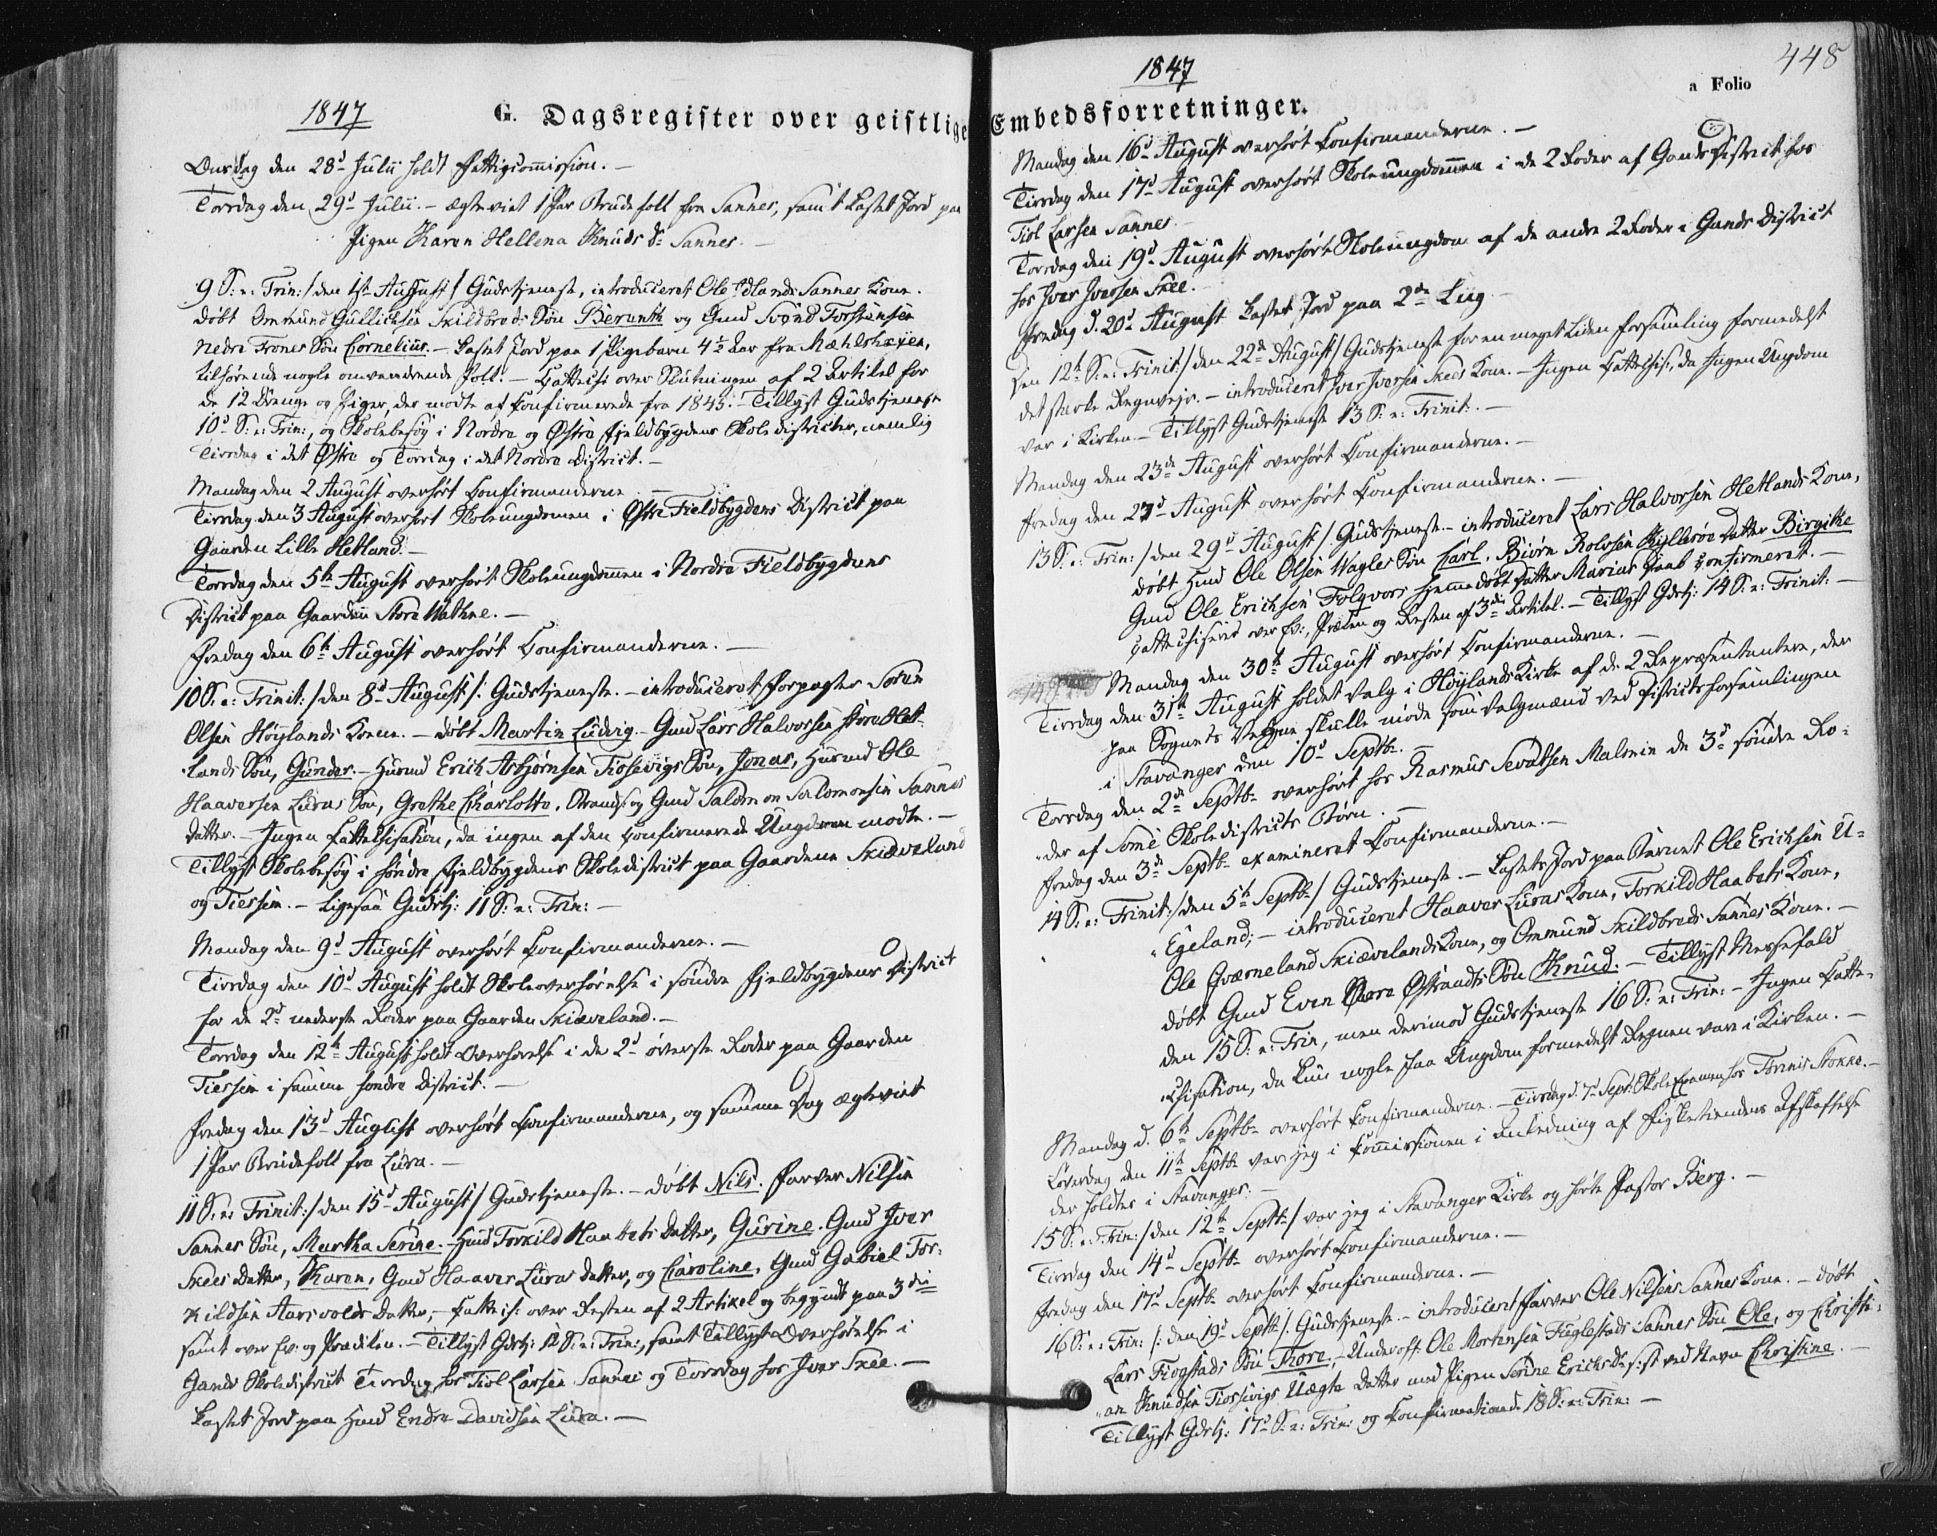 1847
G. Dagsregister over geistlige
Onsdag den 28d Julii holdt Fattigcommission. —
Torsdag den 29d Julii. — ægteviet 1 Par Brudefolk fra Sannes, samt kastet Jord paa
Pigen Karen Hellena Knuds D: Sannes. —
9 S: e: Trin: / den 1ste August / Gudstjeneste, introduceret Ole Idlands Sannes Kone.
døbt Ommund Gullichsen Skildbreds Søn Berenth og Gmd Svend Torstensen
Nedre Frones Søn Cornelius. — Kastet Jord paa 1 Pigebarn 4½ Aar fra
tilhørende nogle omvandrende Folk. — Catteches over Slutningen af 2 Artikel for
de 12 Drenge og Piger, der mødte af Confirmerede fra 1845. — Tillyst Gudstjeneste
10d S: e: Trin:, og Skolebesøg i Nordre og Østre Fjeldbygdens Skoledistricter, nemlig
Tirsdag i det Østre og Torsdag i det Nordre District. —
Mandag den 2 August overhørt Confirmanderne —
Tirsdag den 3 August overhørt Skoleungdommen i Østre Fieldbygdens District paa
Gaarden Lille Hetland. —
Torsdag den 5te August overhørt Skoleungdommen i Nordre Fieldbygdens
District paa Gaarden Store Wathne. —
Fredag den 6te August overhørt Confirmanderne. —
10 S: e: Trinit: / den 8d August /: Gudstjeneste. — introduceret Forpagter Søren
Olsen Høylands Konen. — døbt Martin Ludvig. Gmd Lars Halvorsen Store Het-
lands Søn, Gunder. — Huusmd Erich Asbjørnsen Tiosevigs Søn, Jonas, Huusmd Ole
Haaversen Luras Søn, Grethe Charlotte, Strands: og Gmd Salomon Salomonsen Sannes
Datter. — Ingen Cattechisation, da ingen af den confirmerede Ungdom mødte. —
Tillyst Skolebesøg i søndre Fjeldbygdens Skoledistrict paa Gaardene Skiæveland
og Tiessem. — Ligesaa Gudstj: 11 S: e: Trin: —
Mandag den 9d August overhørt Confirmanderne. —
Tirsdag den 10d August holdt Skoleoverhørelse i søndre Fjeldbygdens District
for de 2d nederste Roder paa Gaarden Skiæveland. —
Torsdag den 12te August holdt Overhørelse i de 2d øverste Roder paa Gaarden
Tiessem i samme søndre District. —
Fredag den 13d August overhørt Confirmanderne, og samme Dag ægteviet
1 Par Brudefolk fra Lura. —
11 S: e: Trinit: / den 15d August / Gudstjeneste. — døbt Nils. Farver Nilsen
Sannes Søn, Martha Serine. Huusmd Torkild Haabets Datter, Gurine. Gmd Iver
Skees Datter, Karen, Gmd Haaver Luras Datter, og Caroline, Gmd Gabriel Tor-
kildsen Aarsvolds Datter, — Catteis: over Resten af 2 Artikel og begyndt paa 3die
samt over Ev: og Prædiken. — Tillyst Gdstj: 12 S: e: Trin:, samt Tillyst Overhørelse i
Gands Skoledistrict Tirsdag hos Tiol Larsen Sannes og Torsdag hos Iver Skee. —
Kastet Jord paa Huusmd Endre Davidsen Lura. —
1847
448
a Folio
Embedsforretninger.
Mandag den 16d August overhørt Confirmanderne. —
Tirsdag den 17d August overhørt Skoleungdommen i de 2 Roder af Gands District hos
Tiol Larsen Sannes —
Torsdag den 19d August overhørt Skoleungdom af de andre 2 Roder i Gands District
hos Iver Iversen Skee. —
Fredag d. 20d August kastet Jord paa 2de Liig —
Den 12te S: e: Trinit: / den 22de August / Gudstjeneste for en meget liden Forsamling formedelst
det stærke Regnveir. — introduceret Iver Iversen Skees Kone. — Ingen Cattechis:, da Ingen Ungdom
var i Kirken. — Tillyst Gudstjeneste 13 S: e: Trinit: —
Mandag den 23de August overhørt Confirmanderne. —
Fredag den 27d August overhørt Confirmanderne. —
13 S: e: Trin: / den 29d August / Gudstjeneste. — introduceret Lars Halvorsen Hetlands Kone,
døbt Huusmd Ole Olsen Wagles Søn Carl. Biørn Rolvsen Kyllesøe Datter Birgithe
Gmd Ole Erichsen Folgvors hjemmedøbt Datter Marias Daab confirmeret. —
Cattechiseres over Ev:, Præken og Resten af 3die Artikel. — Tillyst Gdstj: 14 S: e: Trinit: —
Mandag den 30te August overhørt Confirmanderne. —
Tirsdag den 31te August holdet Valg i Høylands Kirke af de 2 Repræsentantere, der
paa Sognets Vegne skulle møde som Valgmænd ved Districtsforsamlingen
i Stavanger den 10d Septbr. —
Torsdag den 2de Septbr overhørt hos Rasmus Sevatsen Malmin de 3d søndre Ro-
der af Somè Skoledistricts Børn. —
Fredag den 3de Septbr examineret Confirmanderne. —
14 S: e: Trinit: / den 5te Septbr / Gudstjeneste. — Kastet Jord paa Barnet Ole Erichsen U-
Egeland; — introduceret Haaver Luras Kone, Torkild Haabets Kone,
Ole Qværneland Skiævelands Kone, og Ommund Skildbreds Sannes Kone. —
døbt Gmd Even Øvre Østraadts Søn Knud. — Tillyst Messefald
den 15 S: e: Trin, men derimod Gudstjeneste 16 S: e: Trin: — Ingen Catte-
chisation, da kun nogle faa Ungdom formedelst Regnen vare i Kirken. —
Mandag d. 6te Septbr overhørt Confirmanderne. — Tirsdag d. 7d Sept: SkoleExamen hos Tønnis Stokke. —
Løverdag den 11te Septbr var jeg i Commissionen i Anledning af Fisketiendens Afskaffelse
der holdtes i Stavanger. —
15 S: e: Trin: / den 12te Septbr / var jeg i Stavanger Kirke og hørte Pastor Berg. —
Tirsdag den 14d Septbr overhørt Confirmanderne. —
Fredag den 17d Septbr overhørt Confirmanderne. —
16 S: e: Trin: /: den 19d Septbr /: Gudstjeneste. — introduceret Farver Ole Nilsens Sannes Kone. — døbt
Lars Fiogstads Søn Thore, — Underoff: Ole Mortensen Fuglestads Sannes Søn Ole, og Christi-
an Knudsen Tiossevigs Uægte Datter med Pigen Serine Erichs D: sist ved Navn Christine. —
Tillyst Gdstj: 17d S: e: Trin: og Confirmationds 18 S: e: Trin: —